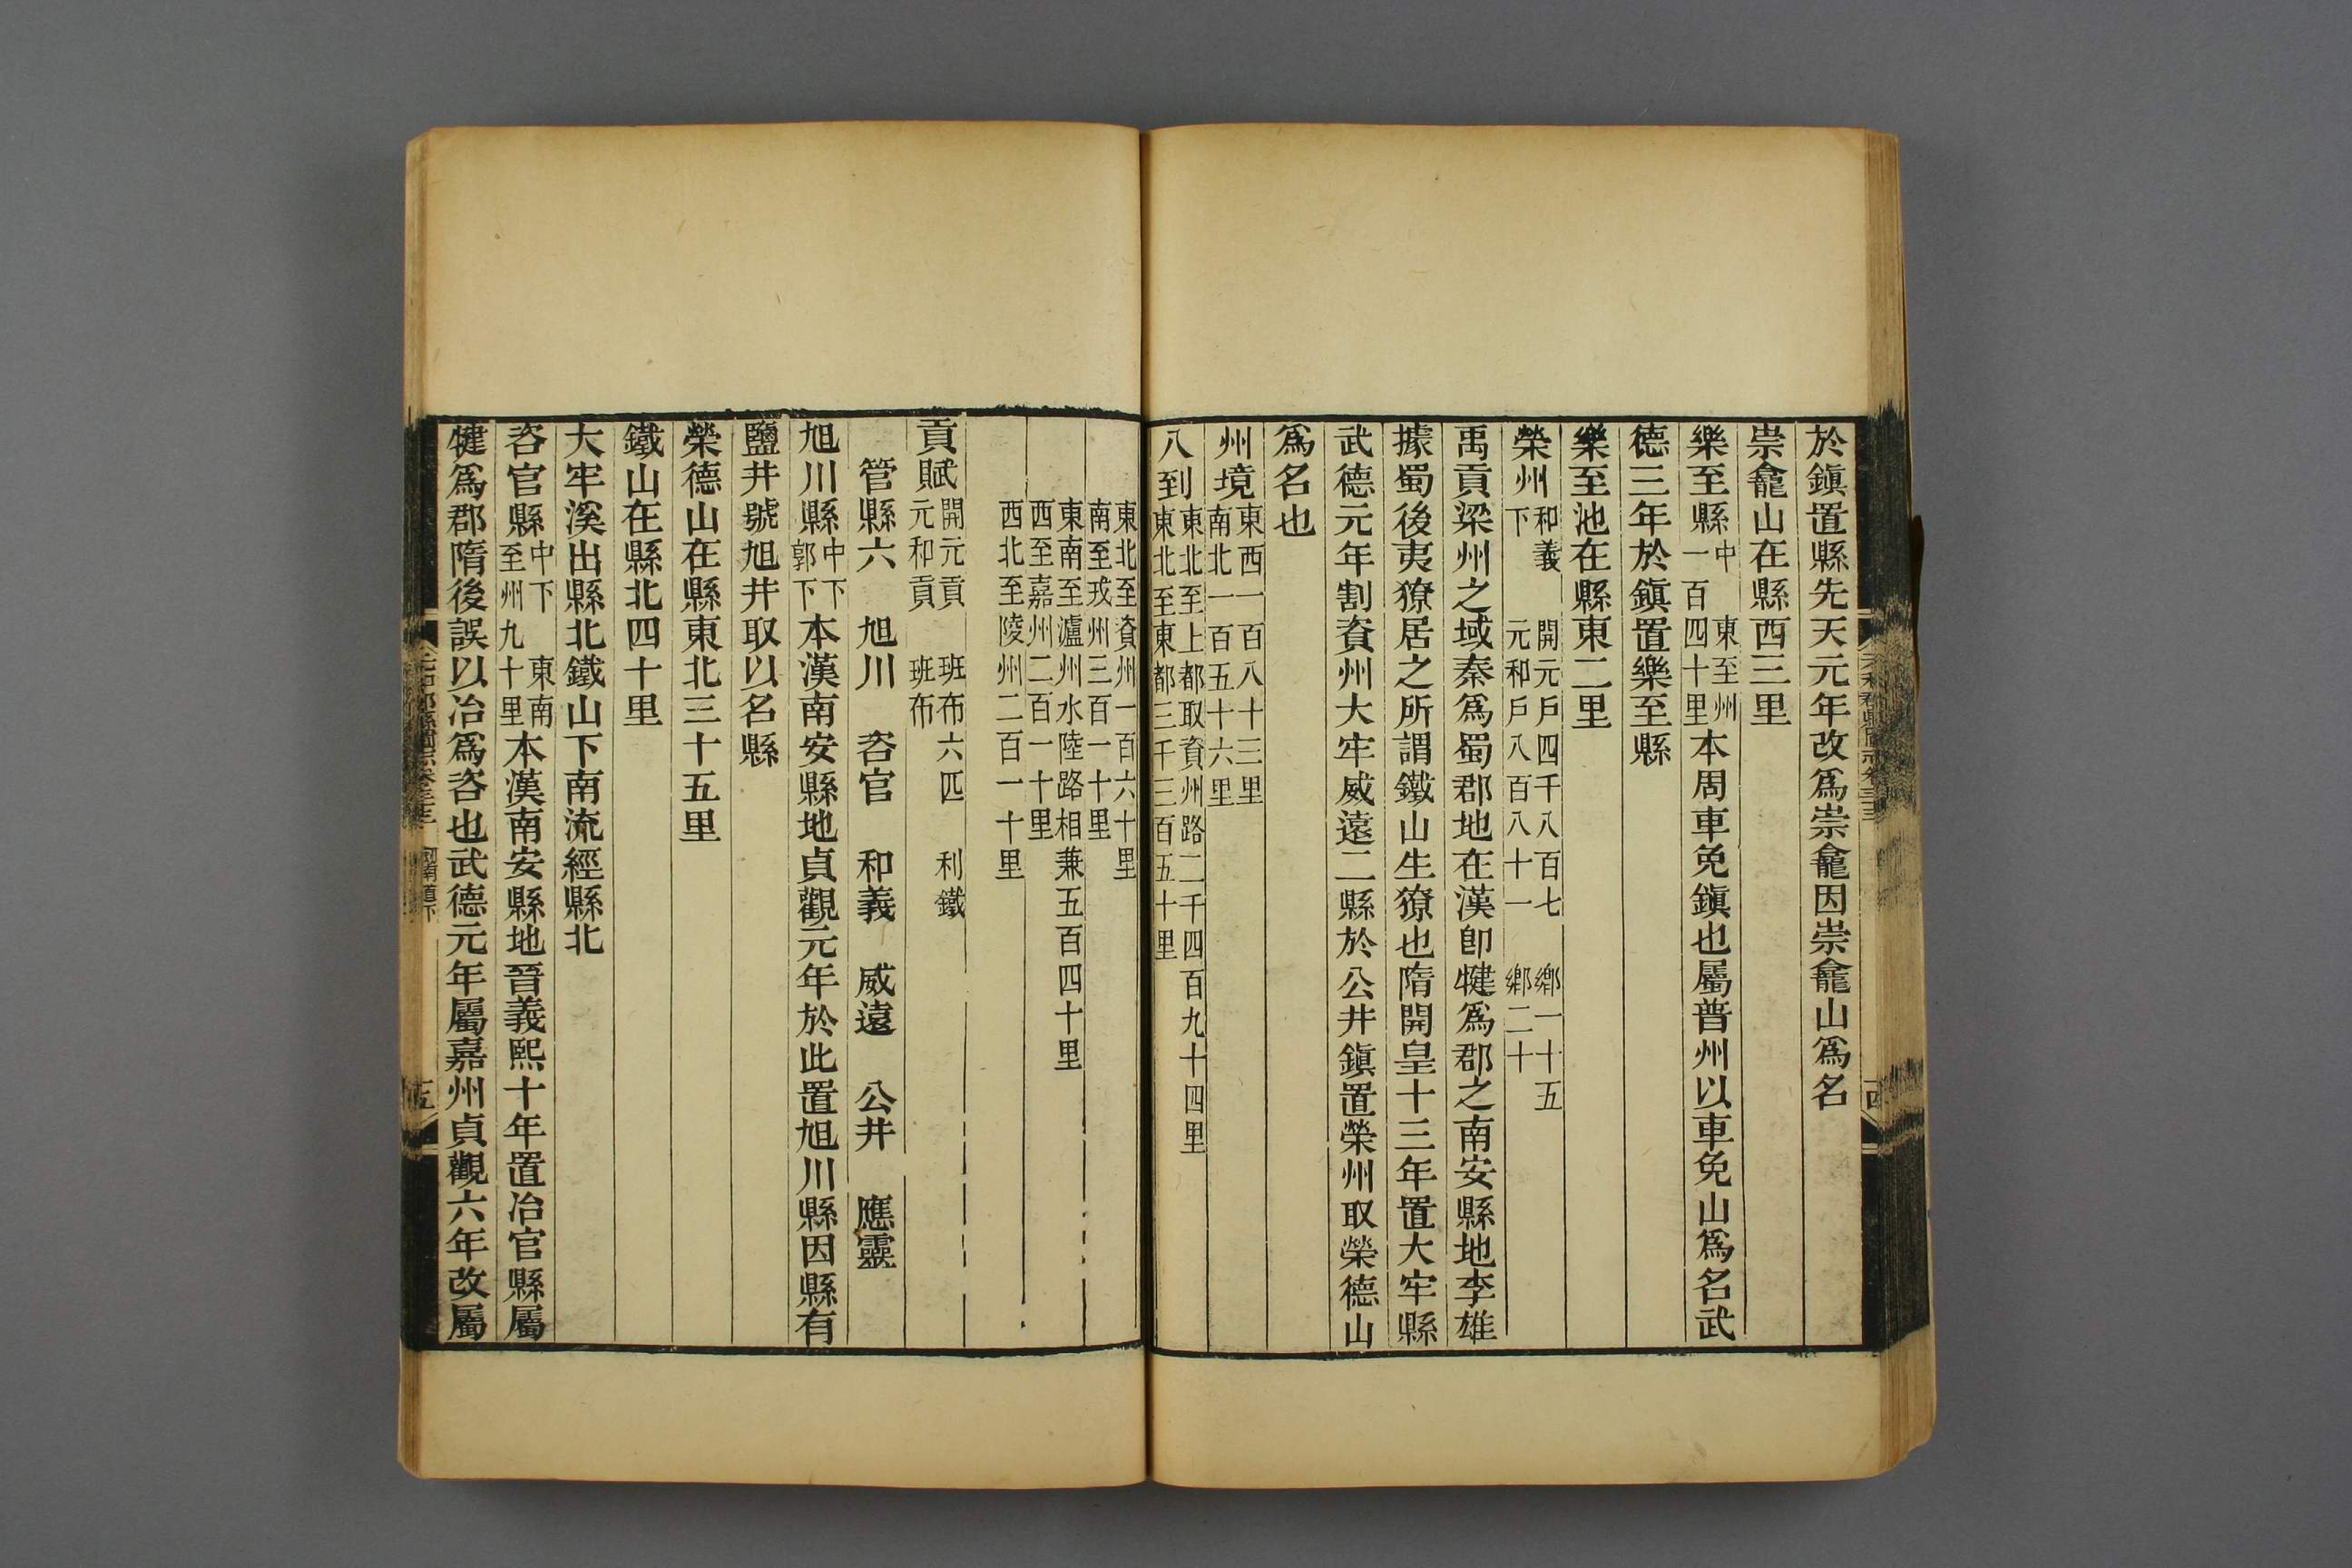 於鎮置縣先天元年改爲崇龕因崇龕山爲名
崇龕山在縣西三里
樂至縣中 東至州一百四十里本周車免鎮也屬普州以車免山爲名武
德三年於鎮置樂至縣
樂至池在縣東二里
榮州和義下 開元戶四千八百七 鄉一十五 元和戶八百八十一 鄉二十
禹貢梁州之域秦爲蜀郡地在漢卽犍爲郡之南安縣地李雄
據蜀後夷獠居之所謂鐵山生獠也隋開皇十三年置大牢縣
武德元年割資州大牢威遠二縣於公井鎮置榮州取榮德山
爲名也
州境東西一百八十三里南北一百五十六里
八到東北至上都取資州路二千四百九十四里東北至東都三千三百五十里
東北至資州一百六十里南至戎州三百一十里
東南至瀘州水陸路相兼五百四十里西至嘉州二百一十里
西北至陵州二百一十里
貢賦開元貢 班布六匹 利鐵元和貢 班布
管縣六 旭川 咨官 和義 威遠 公井 應靈
旭川縣中下郭下本漢南安縣地貞觀元年於此置旭川縣因縣有
鹽井號旭井取以名縣
榮德山在縣東北三十五里
鐵山在縣北四十里
大牢溪出縣北鐵山下南流經縣北
咨官縣中下 東南至州九十里本漢南安縣地晉義熙十年置冶官縣屬
犍爲郡隋後誤以冶爲咨也武德元年屬嘉州貞觀六年改屬